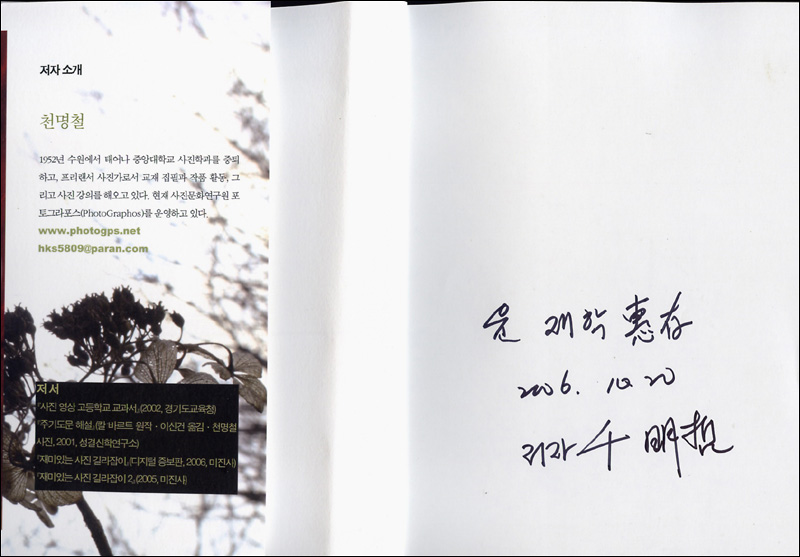 저자 소개
천명철
1952년 수원에서 태어나 중앙대학교 사진학과를 중퇴
하고, 프리랜서 사진가로서 교재 집필과 작품 활동, 그
리고 사진 강의를 해오고 있다. 현재 사진문화연구원 포
토그라포스(PhotoGraphos)를 운영하고 있다.
www.photogps.net
hks5809@paran.com
저서
『사진 영상 고등학교 교과서』(2002, 경기도교육청)
『주기도문 해설』(칼 바르트 원작·이신건 옮김·천명철
사진, 2001, 성경신학연구소)
『재미있는 사진 길라잡이』(디지털 증보판, 2006, 미진사)
『재미있는 사진 길라잡이 2』(2005, 미진사)
윤 재학 惠存
2006. 10. 20
저자 千 明哲